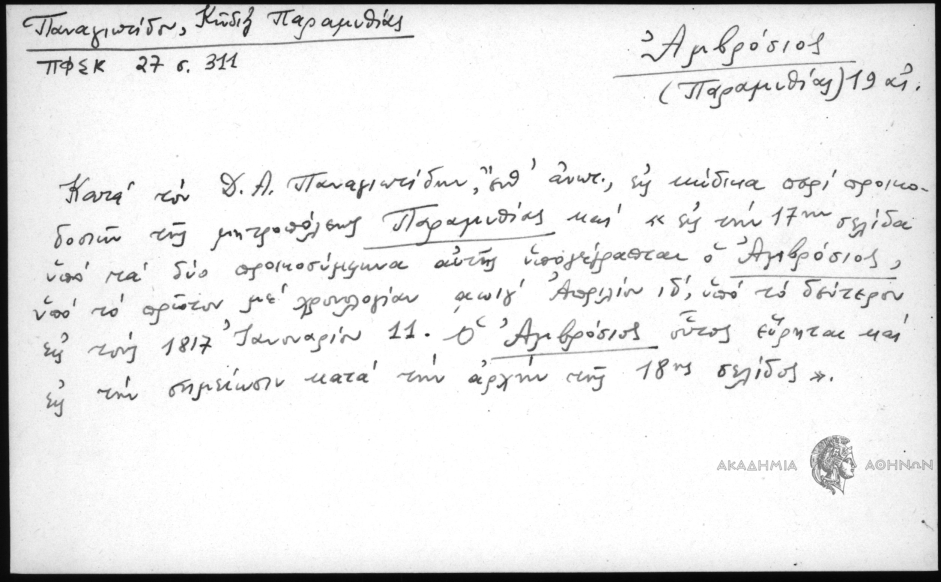 Παναγιωτίδου, Κῶδιξ Παραμυθίας
ΠΦΣΚ 27 σ. 311
Ἀμβρόσιος
(Παραμυθίας) 19 αἰ.
Κατά τόν Δ. Α. Παναγιωτίδην, ἔνθ' ἀνωτ., εἰς κώδικα περί προικο-
δοσιῶν τῆς μητροπόλεως Παραμυθίας καί « εἰς τήν 17ην σελίδα
ὑπό τά δύο προικοσύμφωνα αὐτῆς ὑπογέγραπται ὁ Ἀμβρόσιος,
ὑπό τό πρῶτον μέ χρονολογίαν ͵αωιγ' Ἀπριλίου ιδ', ὑπό τό δεύτερον
εἰς τούς 1817 Ἰανουαρίου 11. Ὁ Ἀμβρόσιος οὗτος εὕρηται καί
εἰς τήν σημείωσιν κατά τήν ἀρχήν τῆς 18ης σελίδος ».
ΑΚΑΔΗΜΙΑ ΑΘΗΝΩΝ